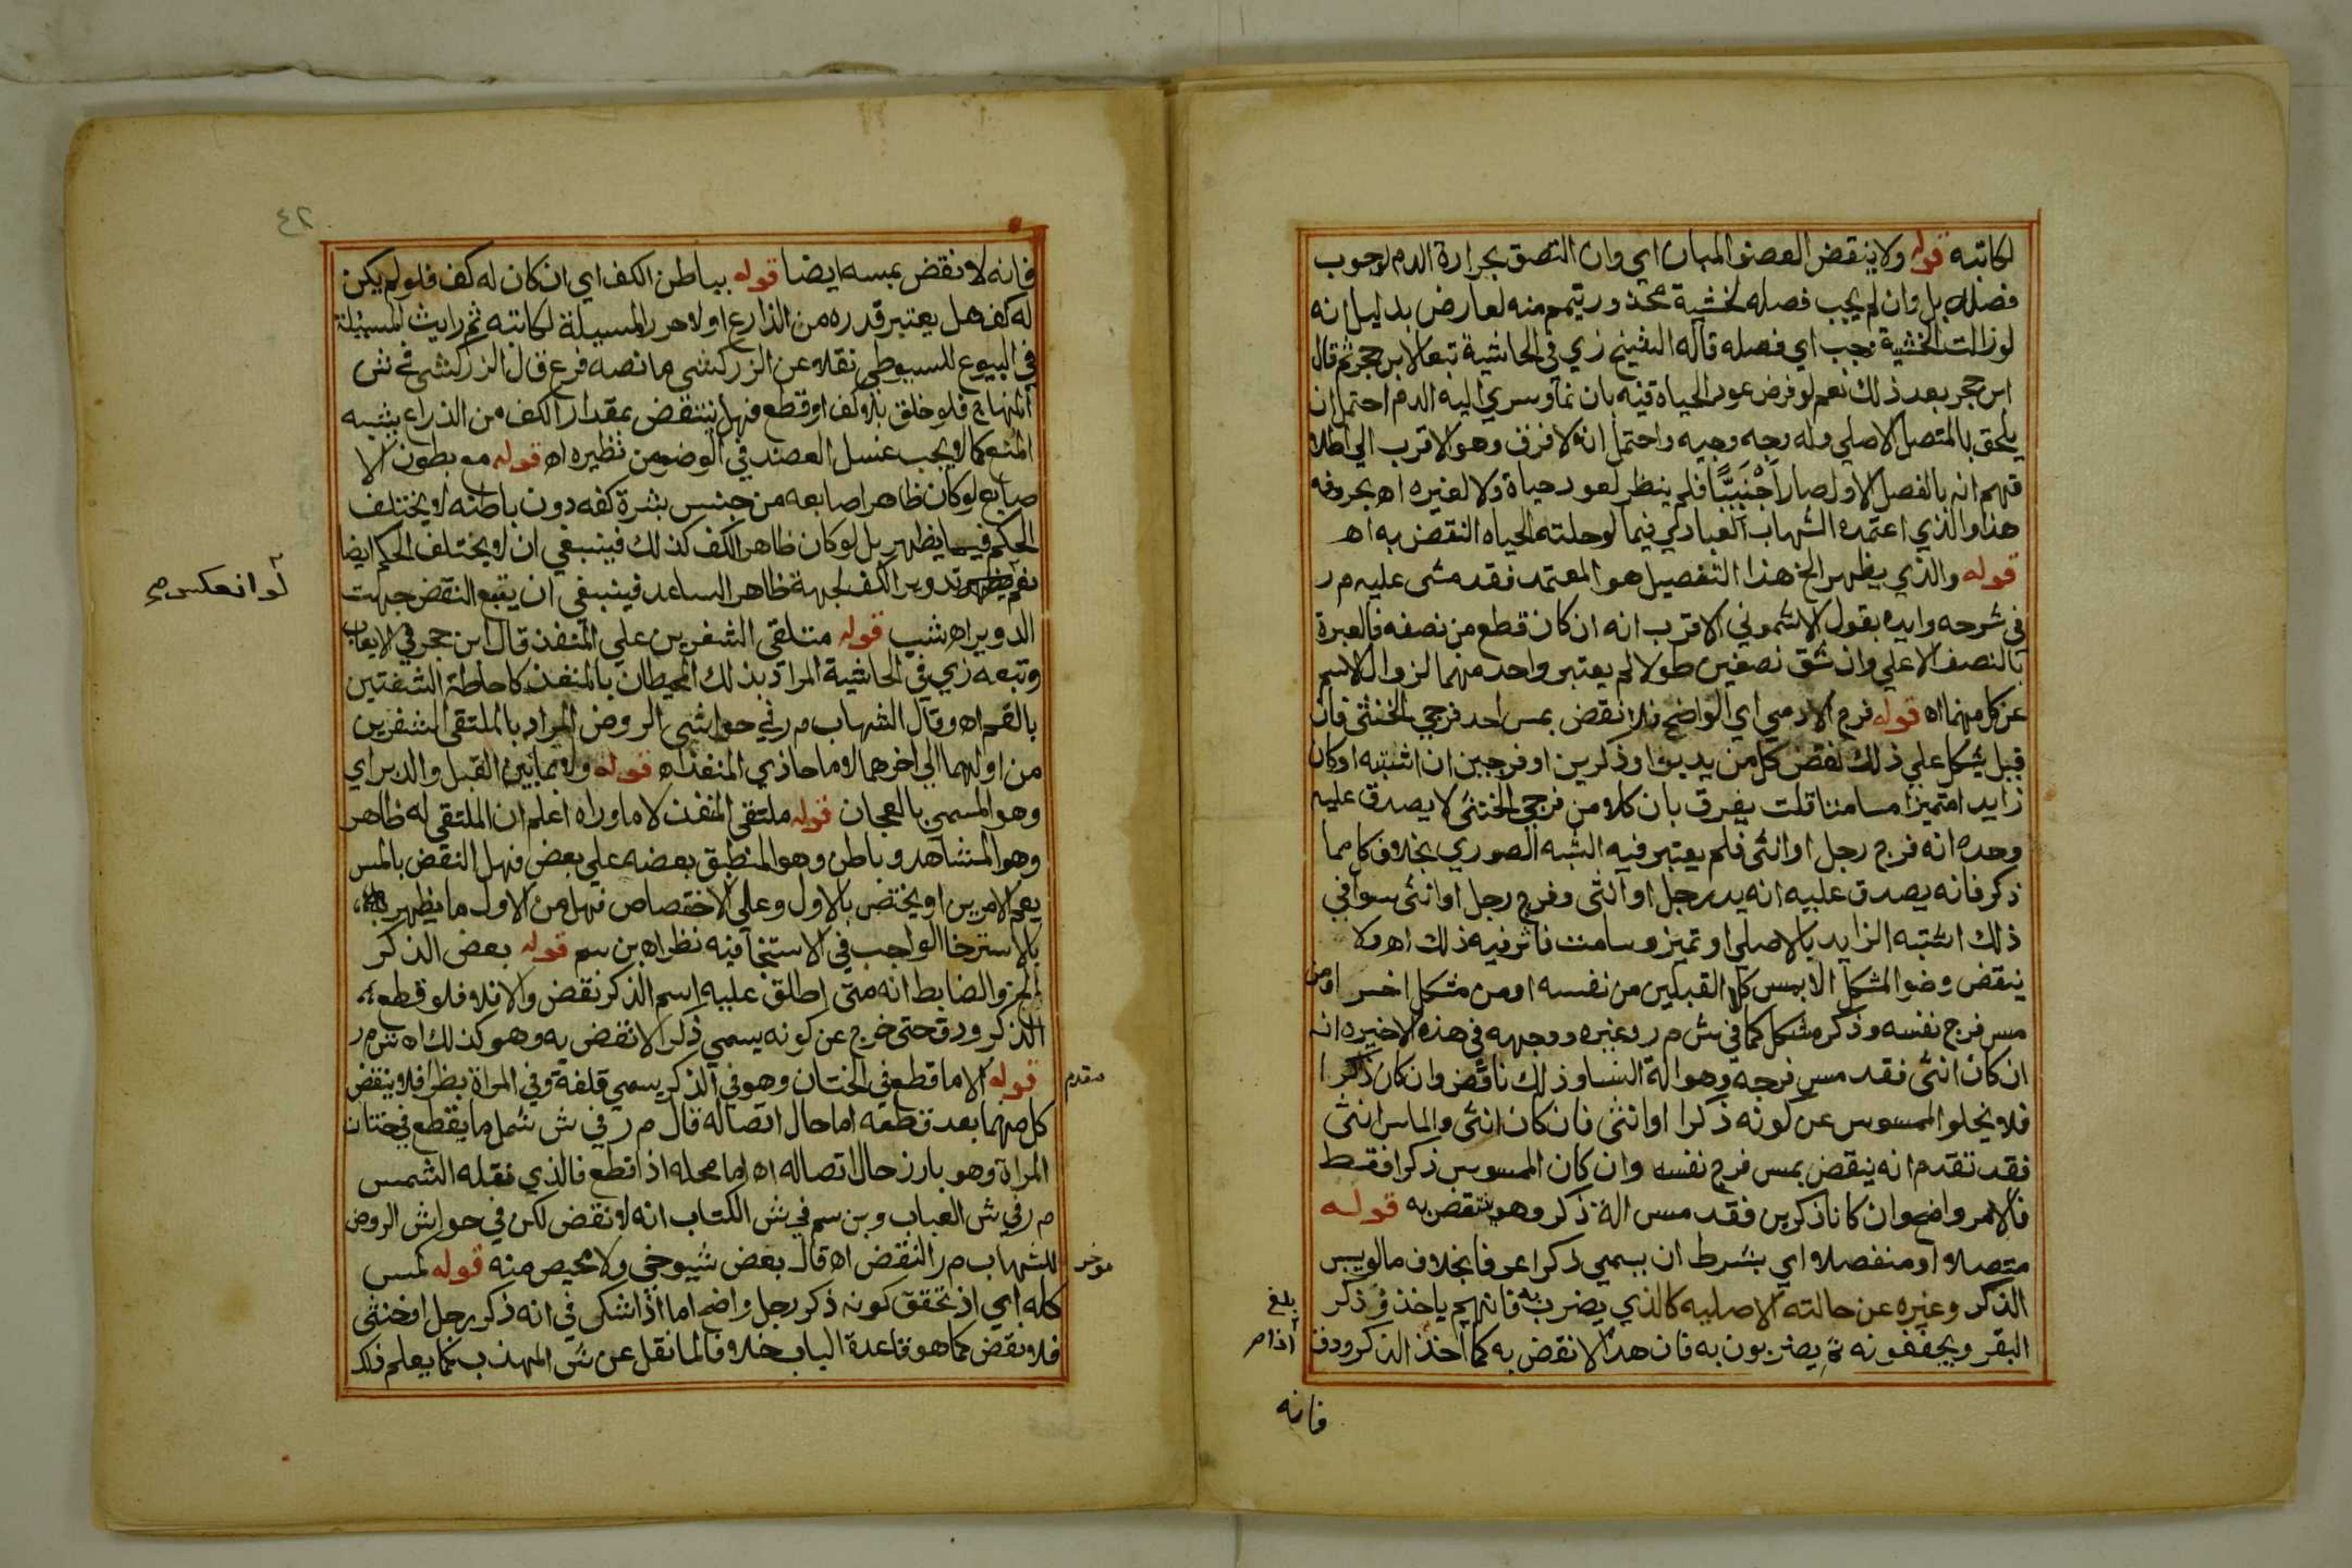 لكاتبه قوله ولا ينقض العضو المبان اي وان التصق بحرارة الدم لوجوب
فصله بل وان لم يجب فصله لخشية محذور تيمم منه لعارض بدليل انه
لو زالت الخشية وجب اي فصله قاله الشيخ زي في الحاشية تبعا لابن حجر ثم قال
ابن حجر بعد ذلك نعم لو فرض عود الحياة فيه بان نما وسري اليه الدم احتمل ان
يلحق بالمتصل الاصلي وله وجه وجيه واحتمل انه لا فرق وهو الاقرب الي اطلا
قهم انه بالفصل الاول صار اَجْنَبِيًّا فلم ينظر لعود حياة ولا لغيره اه بحروفه
هذا والذي اعتمده الشهاب العبادي فيما لو حلته الحياه النقض به اه
قوله والذي يظهر الخ هذا التفصيل هو المعتمد فقد مشى عليه م ر
في شرحه وايده بقول الاشموني الاقرب انه ان كان قطع من نصفه فالعبرة
بالنصف الاعلي وان شق نصفين طولا لم يعتبر واحد منهما لزوال الاسم
عن كل منهما اه قوله فرج الادمي اي الواضح فلا نقض بمس احد فرجي الخنثى فان
قيل يشكل علي ذلك نقض كل من يدين او ذكرين او فرجين ان اشتبه او كان
زايد امتميزا مسامتا قلت يفرق بان كلا من فرجي الخنثى لا يصدق عليه
وحده انه فرج رجل او انثى فلم يعتبر فيه الشبه الصوري بخلاف كل مما
ذكر فانه يصدق عليه انه يد رجل او انثى وفرج رجل او انثى سوا في
ذلك اشتبه الزايد بالاصلي او تميز وسامت فاثر فيه ذلك اه ولا
ينقض وضو المشكل الا بمس كل القبلين من نفسه او من مشكل اخر او من
مس فرج نفسه وذكر مشكل كما في ش م ر وغيره ووجهه في هذه الاخيره انه
ان كان انثى فقد مس فرجه وهو الة النسا وذلك ناقض وان كان ذكرا
فلا يخلو الممسوس عن كونه ذكرا او انثى فان كان انثى والماس انثى
فقد تقدم انه ينقض بمس فرج نفسه وان كان الممسوس ذكرا فقط
فالامر واضح وان كانا ذكرين فقد مس الة ذكر وهو ينتقض به قوله
متصلا او منفصلا اي بشرط ان يسمي ذكرا عرفا بخلاف ما لو يبس
الذكر وغيره عن حالته الاصليه كالذي يضرب به فانهم ياخذون ذكر
البقر ويجففونه ثم يضربون به فان هذا لا نقض به كما اخذ الذكر ودق
بلغ
فانه
٤٢
فانه لا نقض بمسه ايضا قوله بباطن الكف اي ان كان له كف فلو لم يكن
له كف هل يعتبر قدره من الذارع اولا حرر المسيلة لكاتبه ثم رايت المسيئلة
في البيوع للسيوطي نقلا عن الزركشي ما نصه فرع قال الزركشي في ش
المنهاج فلو خلق بلا كف او قطع فهل ينتقض بمقدار الكف من الذراع يشبه
المنع كما لا يجب غسل العضد في الوضو من نظيره اه قوله مع بطون الا
صابع لو كان ظاهر اصابعه من جنس بشرة كفه دون باطنه لا يختلف
الحكم فيما يظهر بل لو كان ظاهر الكف كذلك فينبغي ان لا يختلف الحكم ايضا
نعم تدوير الكف لجهة ظاهر الساعد فينبغي ان يقع النقض جهت
لو انعكس صح
الدوير اه شيب قوله متلقى الشفرين علي المنفذ قال ابن حجر في الايعاب
وتبعه زي في الحاشية المراد بذلك المحيطان بالمنفذ كاحاطة الشفتين
بالفم اه وقال الشهاب م ر في حواشي الروض المراد بالملتقى الشفرين
من اولهما الي اخرهما لا ما حاذي المنفذ اه قوله ولا بما بين القبل والدبر اي
وهو المسمي بالعجان قوله ملتقى المنفذ لا ما وراه اعلم ان الملتقي له ظاهر
وهو المشاهد وباطن وهو المنطبق بعضه علي بعض فهل النقض بالمس
يعم الامرين او يختص بالاول وعلي الاختصاص فهل من الاول ما يظهر
بالاسترخا الواجب في الاستنجا فيه نظر اه بن سم قوله بعض الذكر
الخ والضابط انه متى اطلق عليه اسم الذكر نقض والا فلا فلو قطع
الذكر ودق حتى خرج عن كونه يسمي ذكرا لا نقض به وهو كذلك اه ش م ر
مقدم
قوله الا ما قطع في الختان وهو في الذكر يسمي قلفة وفي المراة بظر افلا ينقض
كل منهما بعد قطعه اما حال اتصاله قال م ر في ش شمل ما يقطع في ختان
المراة وهو بارز حال اتصاله اه اما محله اذا قطع فالذي نقله الشمس
م ر في ش العباب وبن سم في ش الكتاب انه لا نقض لكن في حواش الروض
موخر
للشهاب م ر النقض اه قال بعض شيوخي ولا محيص منه قوله لمس
كله اي اذ تحقق كونه ذكر رجل واضح اما اذا شك في انه ذكر رجل او خنثى
فلا نقض كما هو قاعدة الباب خلافا لما نقل عن ش المهذب كما يعلم ذلك